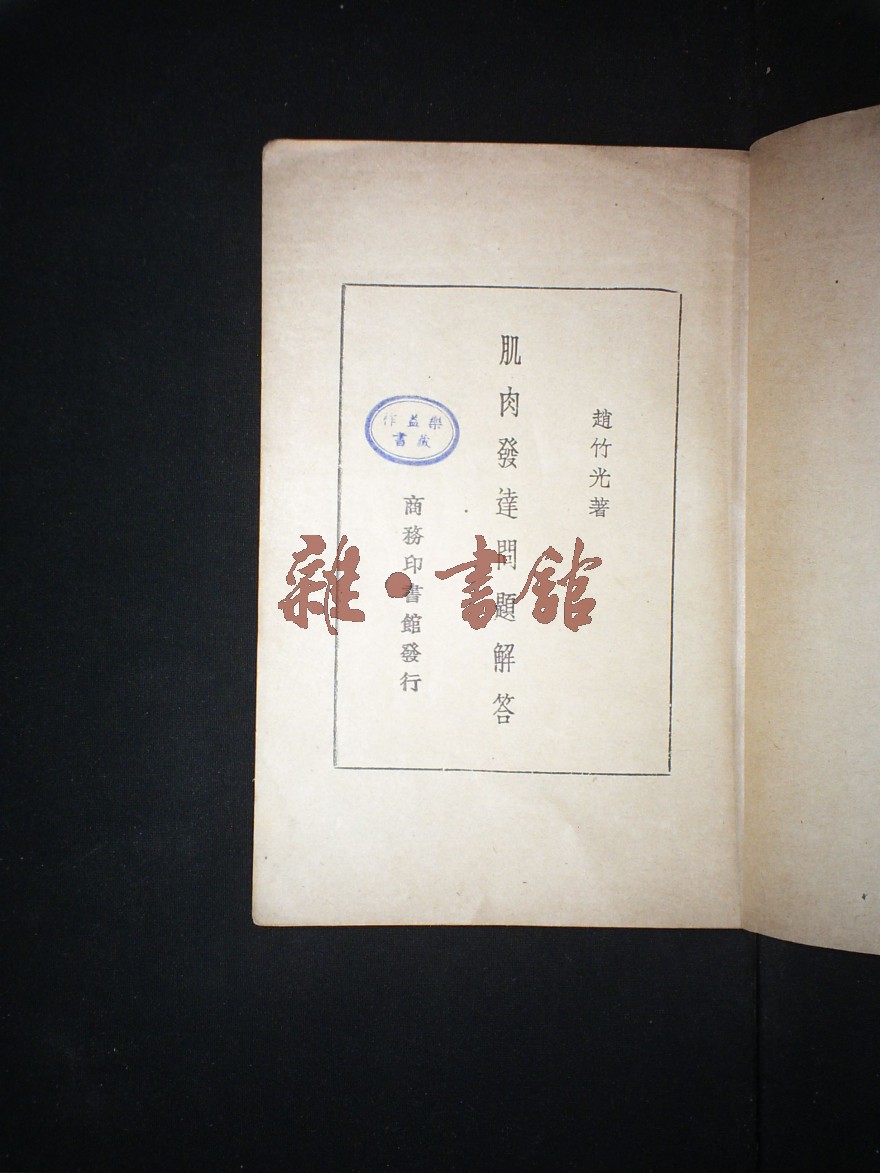 趙竹光著
肌肉發達問題解答
樂益作
藏書
商務印書館發行
雜·書館